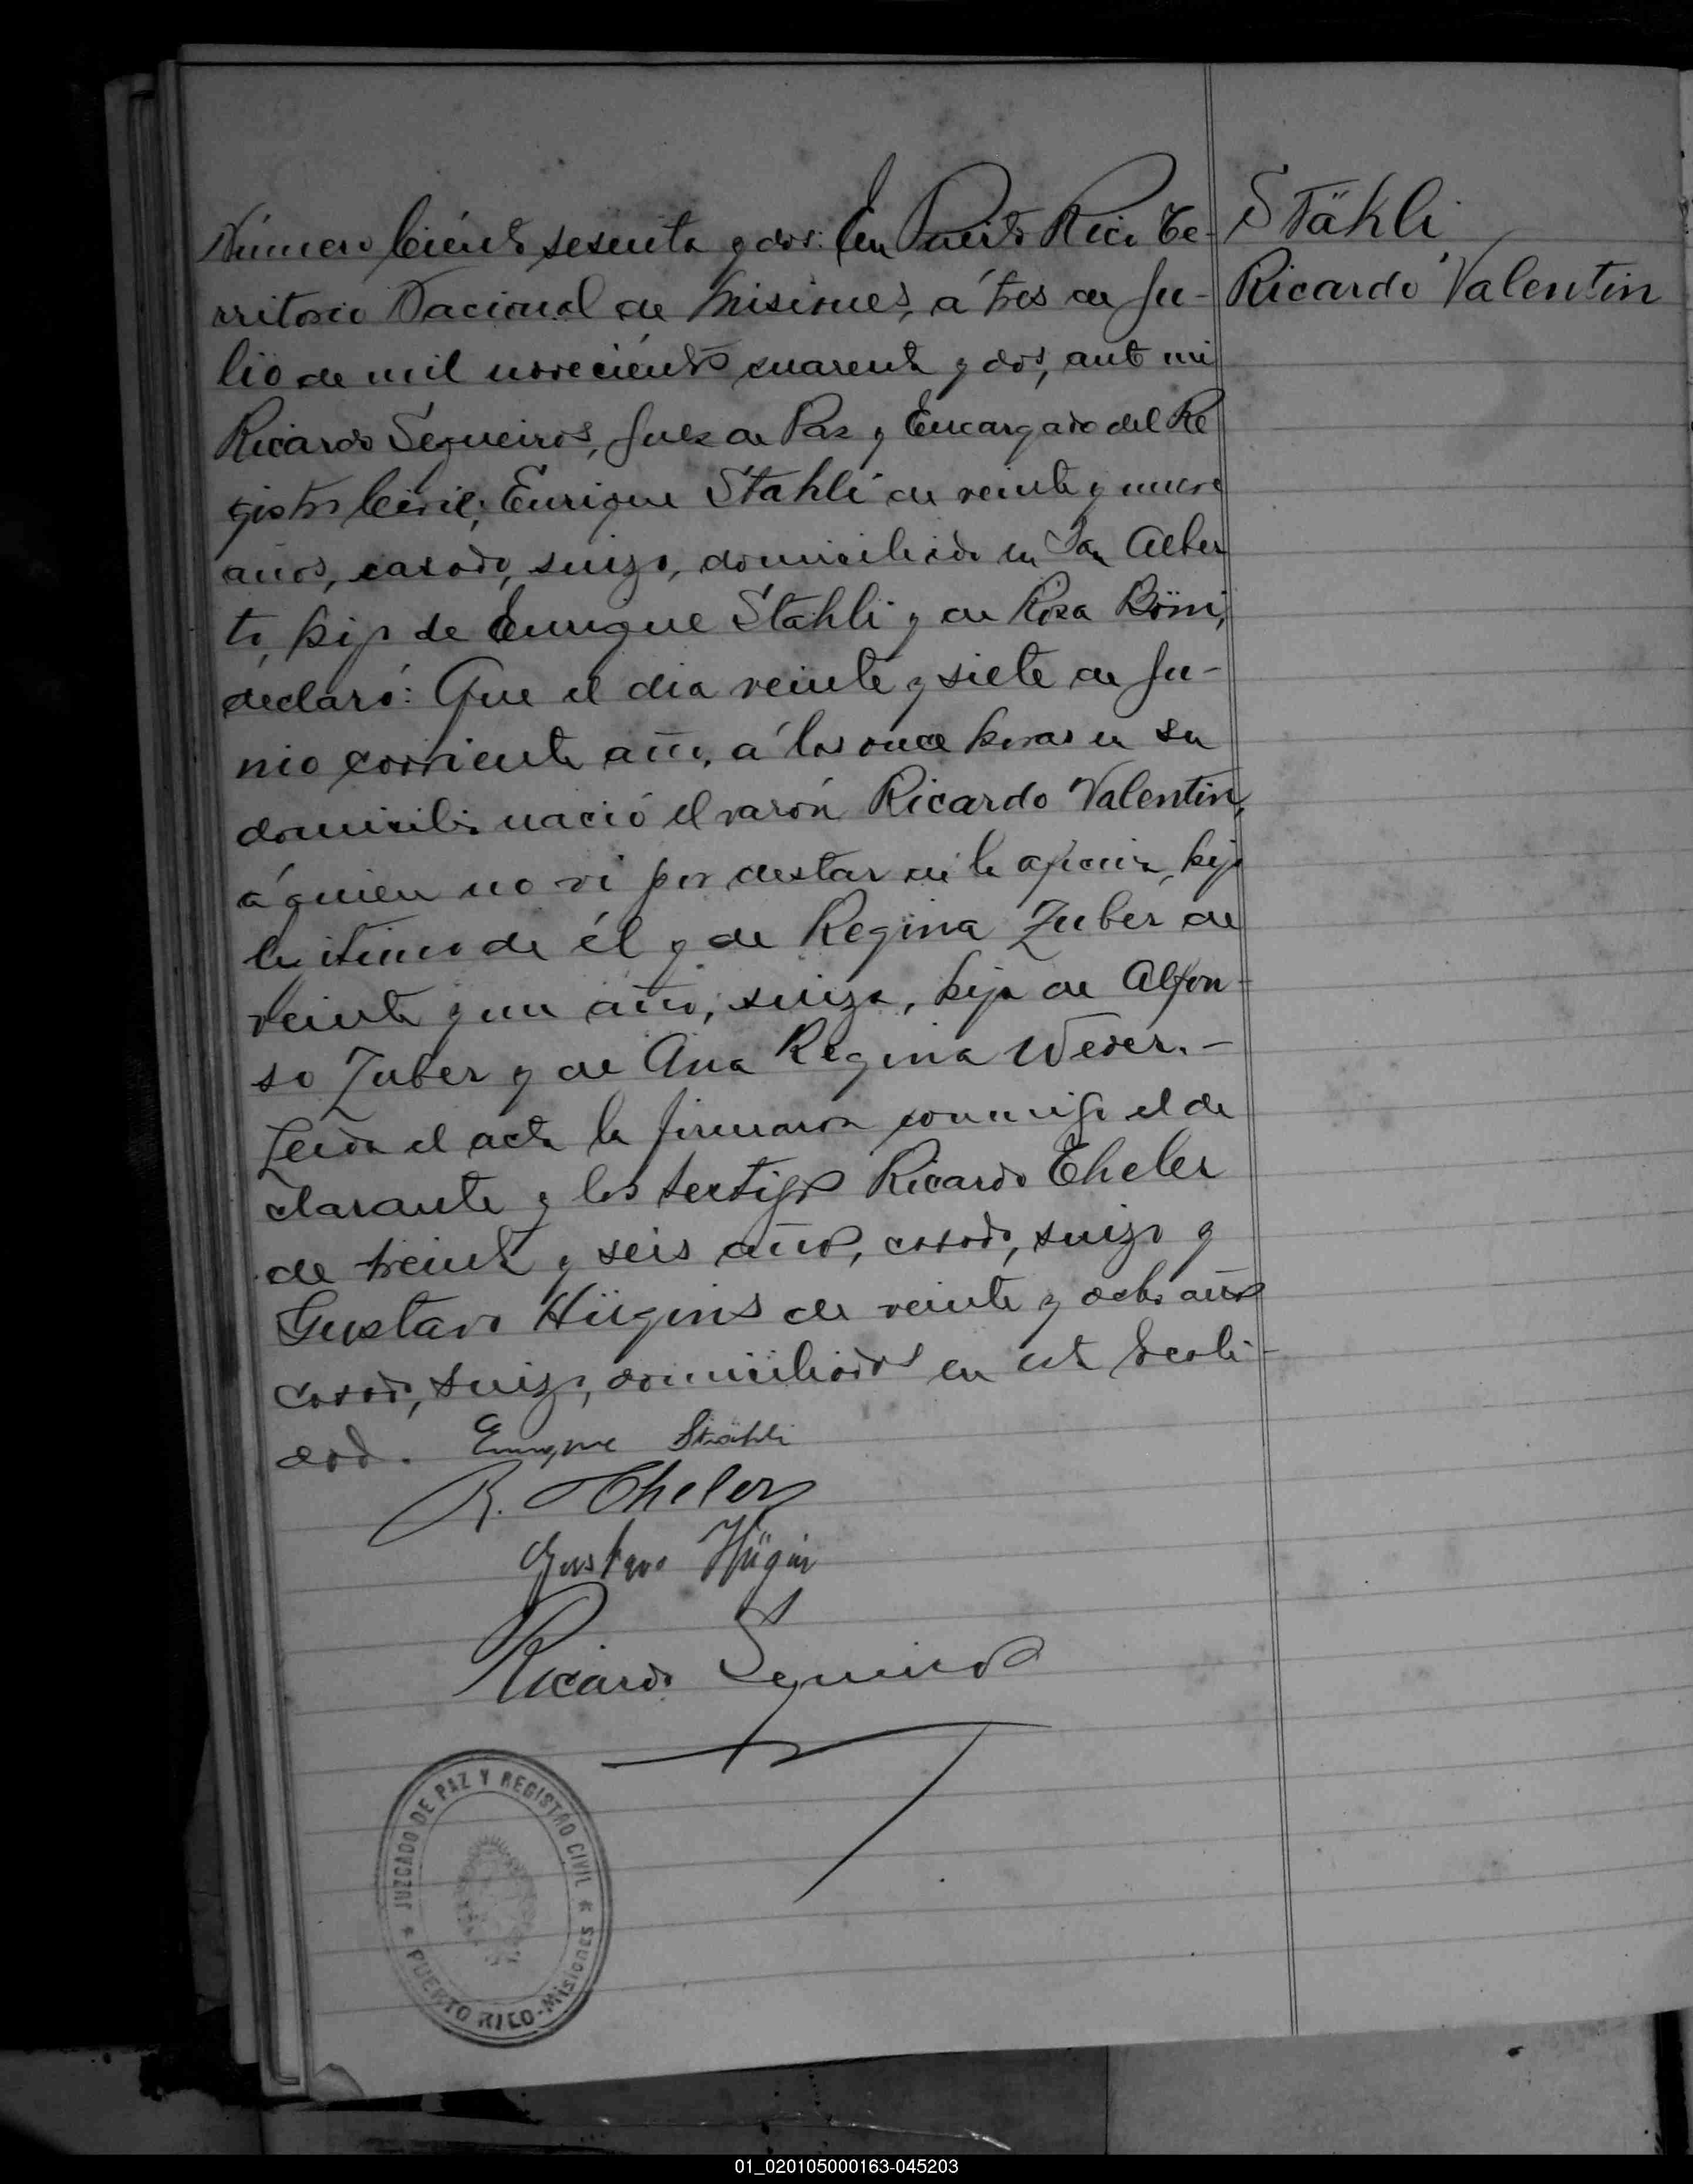 Stähli
Ricardo Valentin
Número Ciénto sesenta y dos: En Puerto Rico Te-
rritorio Nacional de Misiones, á tres de Ju-
lio de mil noveciéntos cuarenta y dos, ante mi
Ricardo Sequeiros, Juez de Paz y Encargado del Re
gistro Civil; Enrique Stahli de veinte y nueve
años, casado, suizo, domiciliado en San Alber
to, hijo de Enrique Stähli y de Rosa Böni,
declaró: Que el dia veinte y siete de Ju-
nio corriente año, á las once horas en su
domicilio nació el varón Ricardo Valentin,
á quien no vi por destar de la oficina, hijo
lejitimo de él y de Regina Zuber de
veinte y un año, suiza, hija de Alfon-
so Zuber y de Ana Regina Weder.-
Leida el acta la firmaron conmigo el de
clarante y los testigos Ricardo Theler
de treinta y seis años, casado, suizo y
Gustavo Hügins de veinte y ocho años
casado, suizo, domiciliados en esta locali-
dad. Enrique Stähli
R. Theler
Gustavo Hügin
Ricardo Sequeiros
JUZGADO DE PAZ Y REGISTRO CIVIL
PUERTO RICO-Misiones
01_020105000163-045203